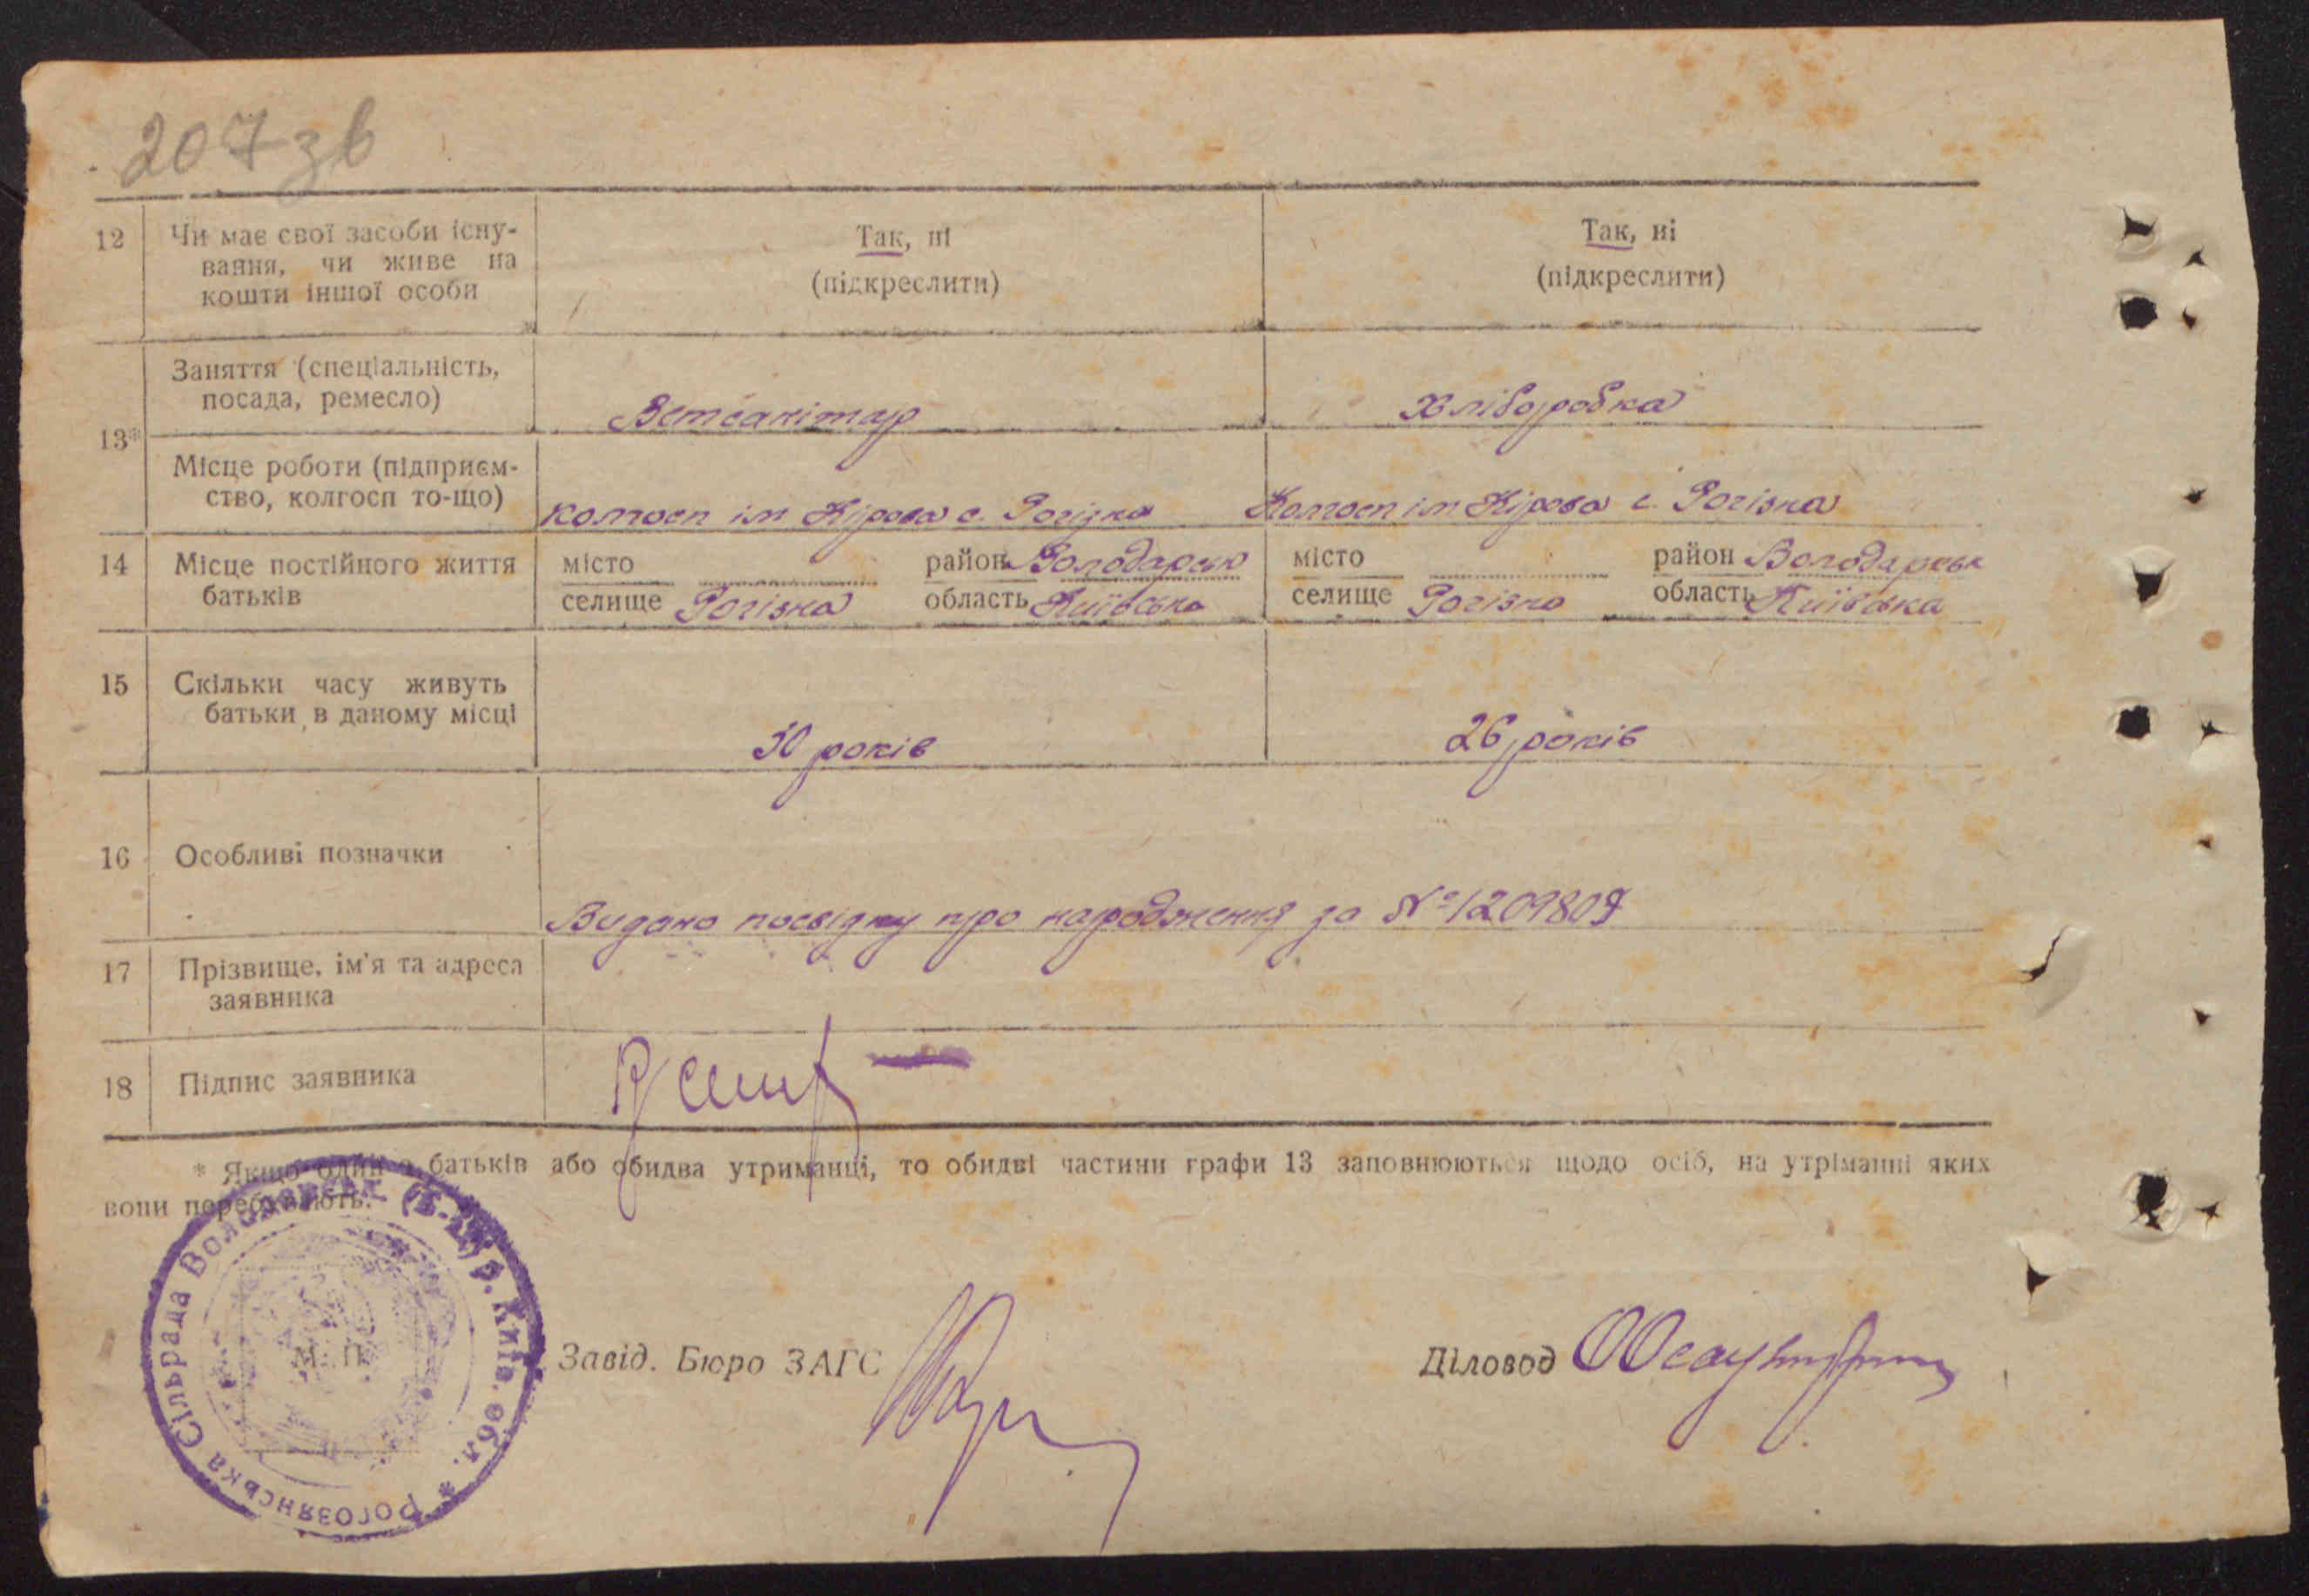 207 зв
12 Чи має свої засоби існу- Так, ні Так, ні
вання, чи живе на (підкреслити) (підкреслити)
кошти іншої особи
Заняття (спеціальність,
посада, ремесло) Ветсанітар Хліборобка
13*
Місце роботи (підприєм-
ство, колгосп то-що) колгосп ім Кірова с. Рогізна Колгосп ім Кірова с. Рогізна
14 Місце постійного життя місто район Володарськ місто район Володарськ
батьків селище Рогізна область Київська селище Рогізна область Київська
15 Скільки часу живуть
батьки в даному місці 30 років 26 років
16 Особливі позначки
Видано посвідку про народження за № 1209809
17 Прізвище, ім'я та адреса
заявника
18 Підпис заявника
* Якщо один з батьків або обидва утриманці, то обидві частини графи 13 заповнюються щодо осіб, на утріманні яких
вони перебувають.
Рогозянська Сільрада р. Київ. обл. *
М. П.
Завід. Бюро ЗАГС
Діловод